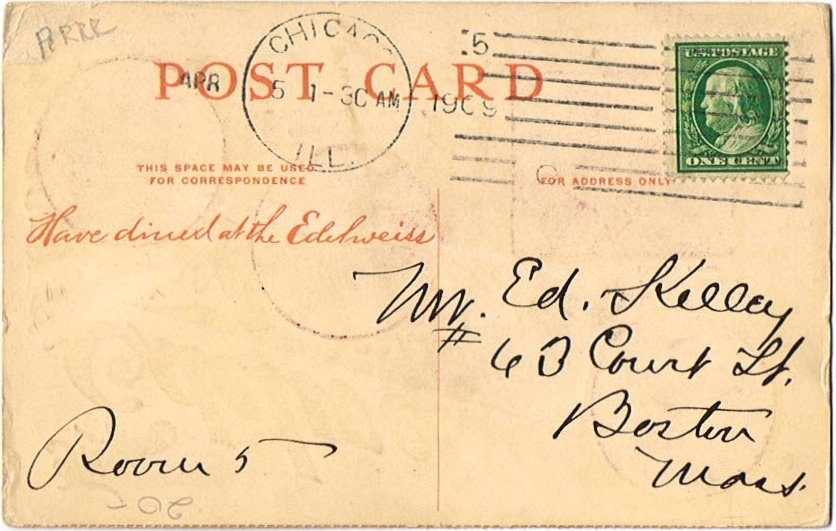 CHICAGO
5
U.S. POSTAGE
POST CARD
APR
5 1-30 AM
1909
ILL.
ONE CENT
THIS SPACE MAY BE USED
FOR CORRESPONDENCE
FOR ADDRESS ONLY
Have dined at the Edelweiss
Mr. Ed. Kelley
# 63 Court St.
Boston
Mass.
Room 5